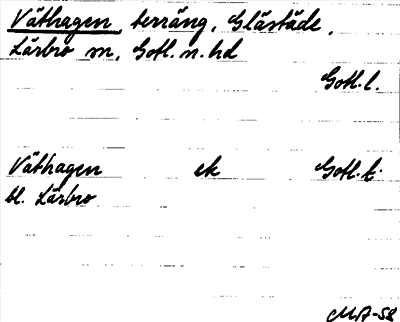 Väthagen, terräng, Glästäde,
Lärbro sn, Gotl. n. hd
Gotl. l.
Väthagen ek Gotl. k.
bl. Lärbro
MA-58